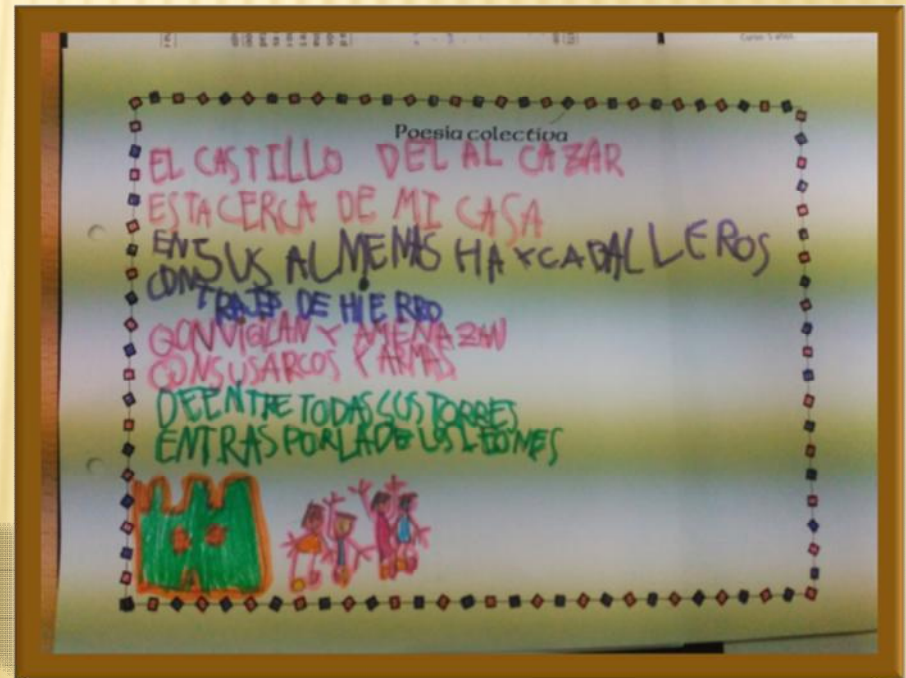 Curso 5 años
Poesia colectiva
EL CASTILLO DEL AL CAZAR
ESTA CERCA DE MI CASA
EN SUS ALMENAS HAY CABALLEROS
CON TRAJES DE HIERRO
QONVIGILAN Y AMENAZAN
CONSUSARCOS Y ARMAS
DEENTRE TODAS SUS TORRES
ENTRAS PORLADE LOS LEONES